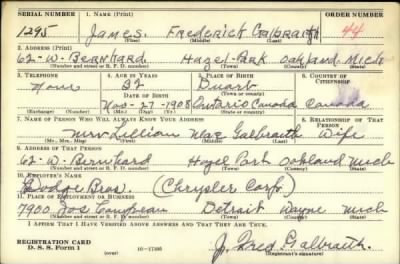 SERIAL NUMBER 1. NAME (Print) ORDER NUMBER
1295 James. Frederick Galbraith 44
(First) (Middle) (Last)
2. ADDRESS (Print)
62-W-Bernhard Hazel-Park Oakland Mich
(Number and street or R. F. D. number) (Town) (County) (State)
3. TELEPHONE 4. AGE IN YEARS 5. PLACE OF BIRTH 6. COUNTRY OF CITIZENSHIP
None 32 Duart
DATE OF BIRTH (Town or county)
Nov-27-1908 Ontario Canada Canada
(Exchange) (Number) (Mo.) (Day) (Yr.) (State or country)
7. NAME OF PERSON WHO WILL ALWAYS KNOW YOUR ADDRESS 8. RELATIONSHIP OF THAT PERSON
Mrs Lillian Mae Galbraith Wife
(Mr., Mrs., Miss) (First) (Middle) (Last)
9. ADDRESS OF THAT PERSON
62-W. Bernhard Hazel Park Oakland Mich
(Number and street or R. F. D. number) (Town) (County) (State)
10. EMPLOYER'S NAME
Dodge Bros. (Chrysler Corp.)
11. PLACE OF EMPLOYMENT OR BUSINESS
7900 Jos Campeau Detroit Wayne Mich
(Number and street or R. F. D. number) (Town) (County) (State)
I AFFIRM THAT I HAVE VERIFIED ABOVE ANSWERS AND THAT THEY ARE TRUE.
REGISTRATION CARD
D. S. S. Form 1 (over) 16-17105 J. Fred Galbraith.
(Registrant's signature)